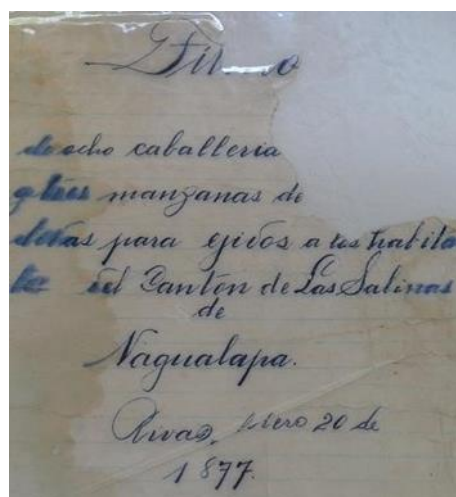 de ocho caballeria
y tres manzanas de
para ejidos a los habita
del Canton de Las Salinas
de
Nagualapa.
Rivas, 20 de
1877.